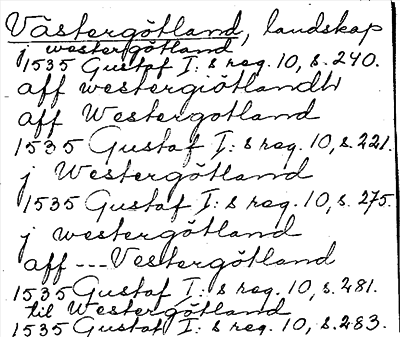 Västergötland, landskap
j westergötland
1535 Gustaf I:s reg. 10, s. 240.
aff westergiötlandh
aff Westergotland
1535 Gustaf I:s reg. 10, s. 221.
j Westergötland
1535 Gustaf I:s reg. 10, s. 275.
j westergötland
aff --- Vestergötland
1535 Gustaf I:s reg. 10, s. 281.
til Westergötland
1535 Gustaf I:s reg. 10, s. 283.